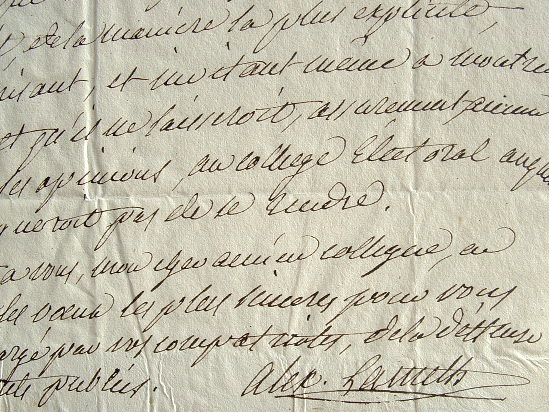 et de la manière la plus explicite,
et invitant même à montrer
et qu'il ne laisseroit, assurement aucun
ses opinions, au college Électoral auquel
pas de se rendre.
à vous, mon cher ancien collegue, en
les vœux les plus sinceres pour vous
par vos compatriotes, de la deffense
publics.
Alex. Lameth